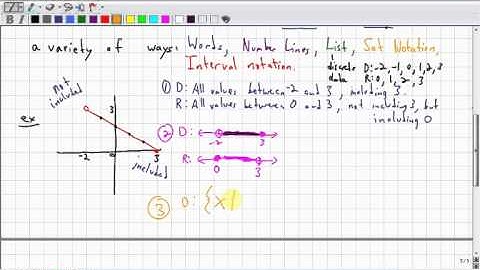 a variety of ways: Words, Number Lines, List, Set Notation,
Interval notation.
discrete data
D: -2, -1, 0, 1, 2, 3
R: 0, 1, 2, 3
① D: All values between -2 and 3, including 3.
R: All values between 0 and 3, not including 3, but
including 0
ex
not included
3
-2 0 3
included
② D:
-2 3
R:
0 3
③ D: {x|